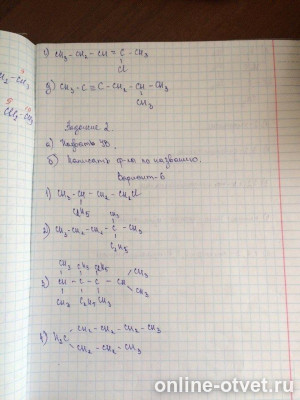 CH₃-CH₂-CH=C-CH₃
Cl
CH₃-C≡C-CH₂-CH-CH₃
CH₃
Задание 2.
а) Назвать УВ.
б) Написать ф-лы по названию.
Вариант-6
1) CH₃-CH-CH₂-CH₂Cl
C₂H₅
CH₃
2) CH₃-CH₂-CH₂-C-CH₃
C₂H₅
CH₃ CH₃ C₂H₅ CH₃
3) CH - C - C - CH
CH₃ C₂H₅ CH₃ CH₃
4) H₂C
CH₂-CH₂-CH₂-CH₃
CH₂-CH₂-CH₃
online-otvet.ru